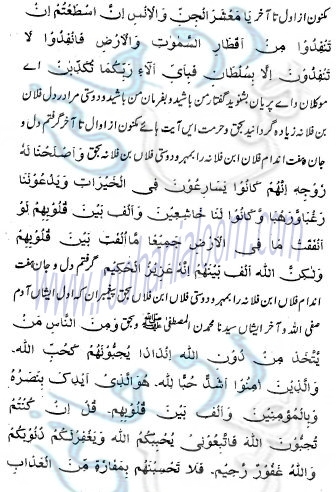 مکنون از اول تا آخر یا مَعْشَرَ الْجِنِّ وَالْاِنْسِ اِنْ اسْتَطَعْتُمْ اِنْ
تَنْفُذُوْا مِنْ اَقْطَارِ السَّمٰوٰتِ وَالْاَرْضِ فَانْفُذُوْا لَا
تَنْفُذُوْنَ اِلَّا بِسُلْطَانٍ فَبِاَيِّ اٰلَآءِ رَبِّكُمَا تُكَذِّبٰنِ اے
موکلان واے پریان بشنوید گفتار من باشید و بفرمان من باشید و دوستی مرا در دل فلاں
بن فلانہ زیادہ گردانید بحق و حرمت ایں آیت ہائے مکنون از اوال تا آخر گرفتم دل و
جان و ہفت اندام فلاں ابن فلانہ را بمہر و دوستی فلاں بن فلانہ بحق وَاَصْلَحْنَا لَهٗ
زَوْجِهٖ اِنَّهُمْ كَانُوْا يُسَارِعُوْنَ فِي الْخَيْرَاتِ وَيَدْعُوْنَنَا
رَغَبًا وَّرَهَبًا وَّكَانُوْا لَنَا خَاشِعِيْنَ وَاَلَّفَ بَيْنَ قُلُوْبِهِمْ لَوْ
اَنْفَقْتَ مَا فِي الْاَرْضِ جَمِيْعًا مَّا اَلَّفْتَ بَيْنَ قُلُوْبِهِمْ
وَلٰكِنَّ اللّٰهَ اَلَّفَ بَيْنَهُمْ اِنَّهٗ عَزِيْزُ الْحَكِيْمِ گرفتم دل و جان ہفت
اندام فلاں ابن فلانہ را بمہر و دوستی فلاں ابن فلانہ بحق پیغمبران کہ اول ایشاں آدم
صفی اللہ و آخر ایشاں سیدنا محمدن المصطفیٰ ﷺ و بحق وَمِنَ النَّاسِ مَنْ
يَّتَّخِذُ مِنْ دُوْنِ اللّٰهِ اَنْدَادًا يُحِبُّوْنَهُمْ كَحُبِّ اللّٰهِ.
وَالَّذِيْنَ اٰمَنُوْا اَشَدُّ حُبًّا لِلّٰهِ. هُوَالَّذِيْ اَيَّدَكَ بِنَصْرِهٖ
وَبِالْمُؤْمِنِيْنَ وَاَلَّفَ بَيْنَ قُلُوْبِهِمْ. قُلْ اِنْ كُنْتُمْ
تُحِبُّوْنَ اللّٰهَ فَاتَّبِعُوْنِيْ يُحْبِبْكُمُ اللّٰهُ وَيَغْفِرْلَكُمْ ذُنُوْبَكُمْ
وَاللّٰهُ غَفُوْرٌ رَّحِيْمٌ. فَلَا تَحْسَبَنَّهُمْ بِمَفَازَةٍ مِّنَ الْعَذَابِ